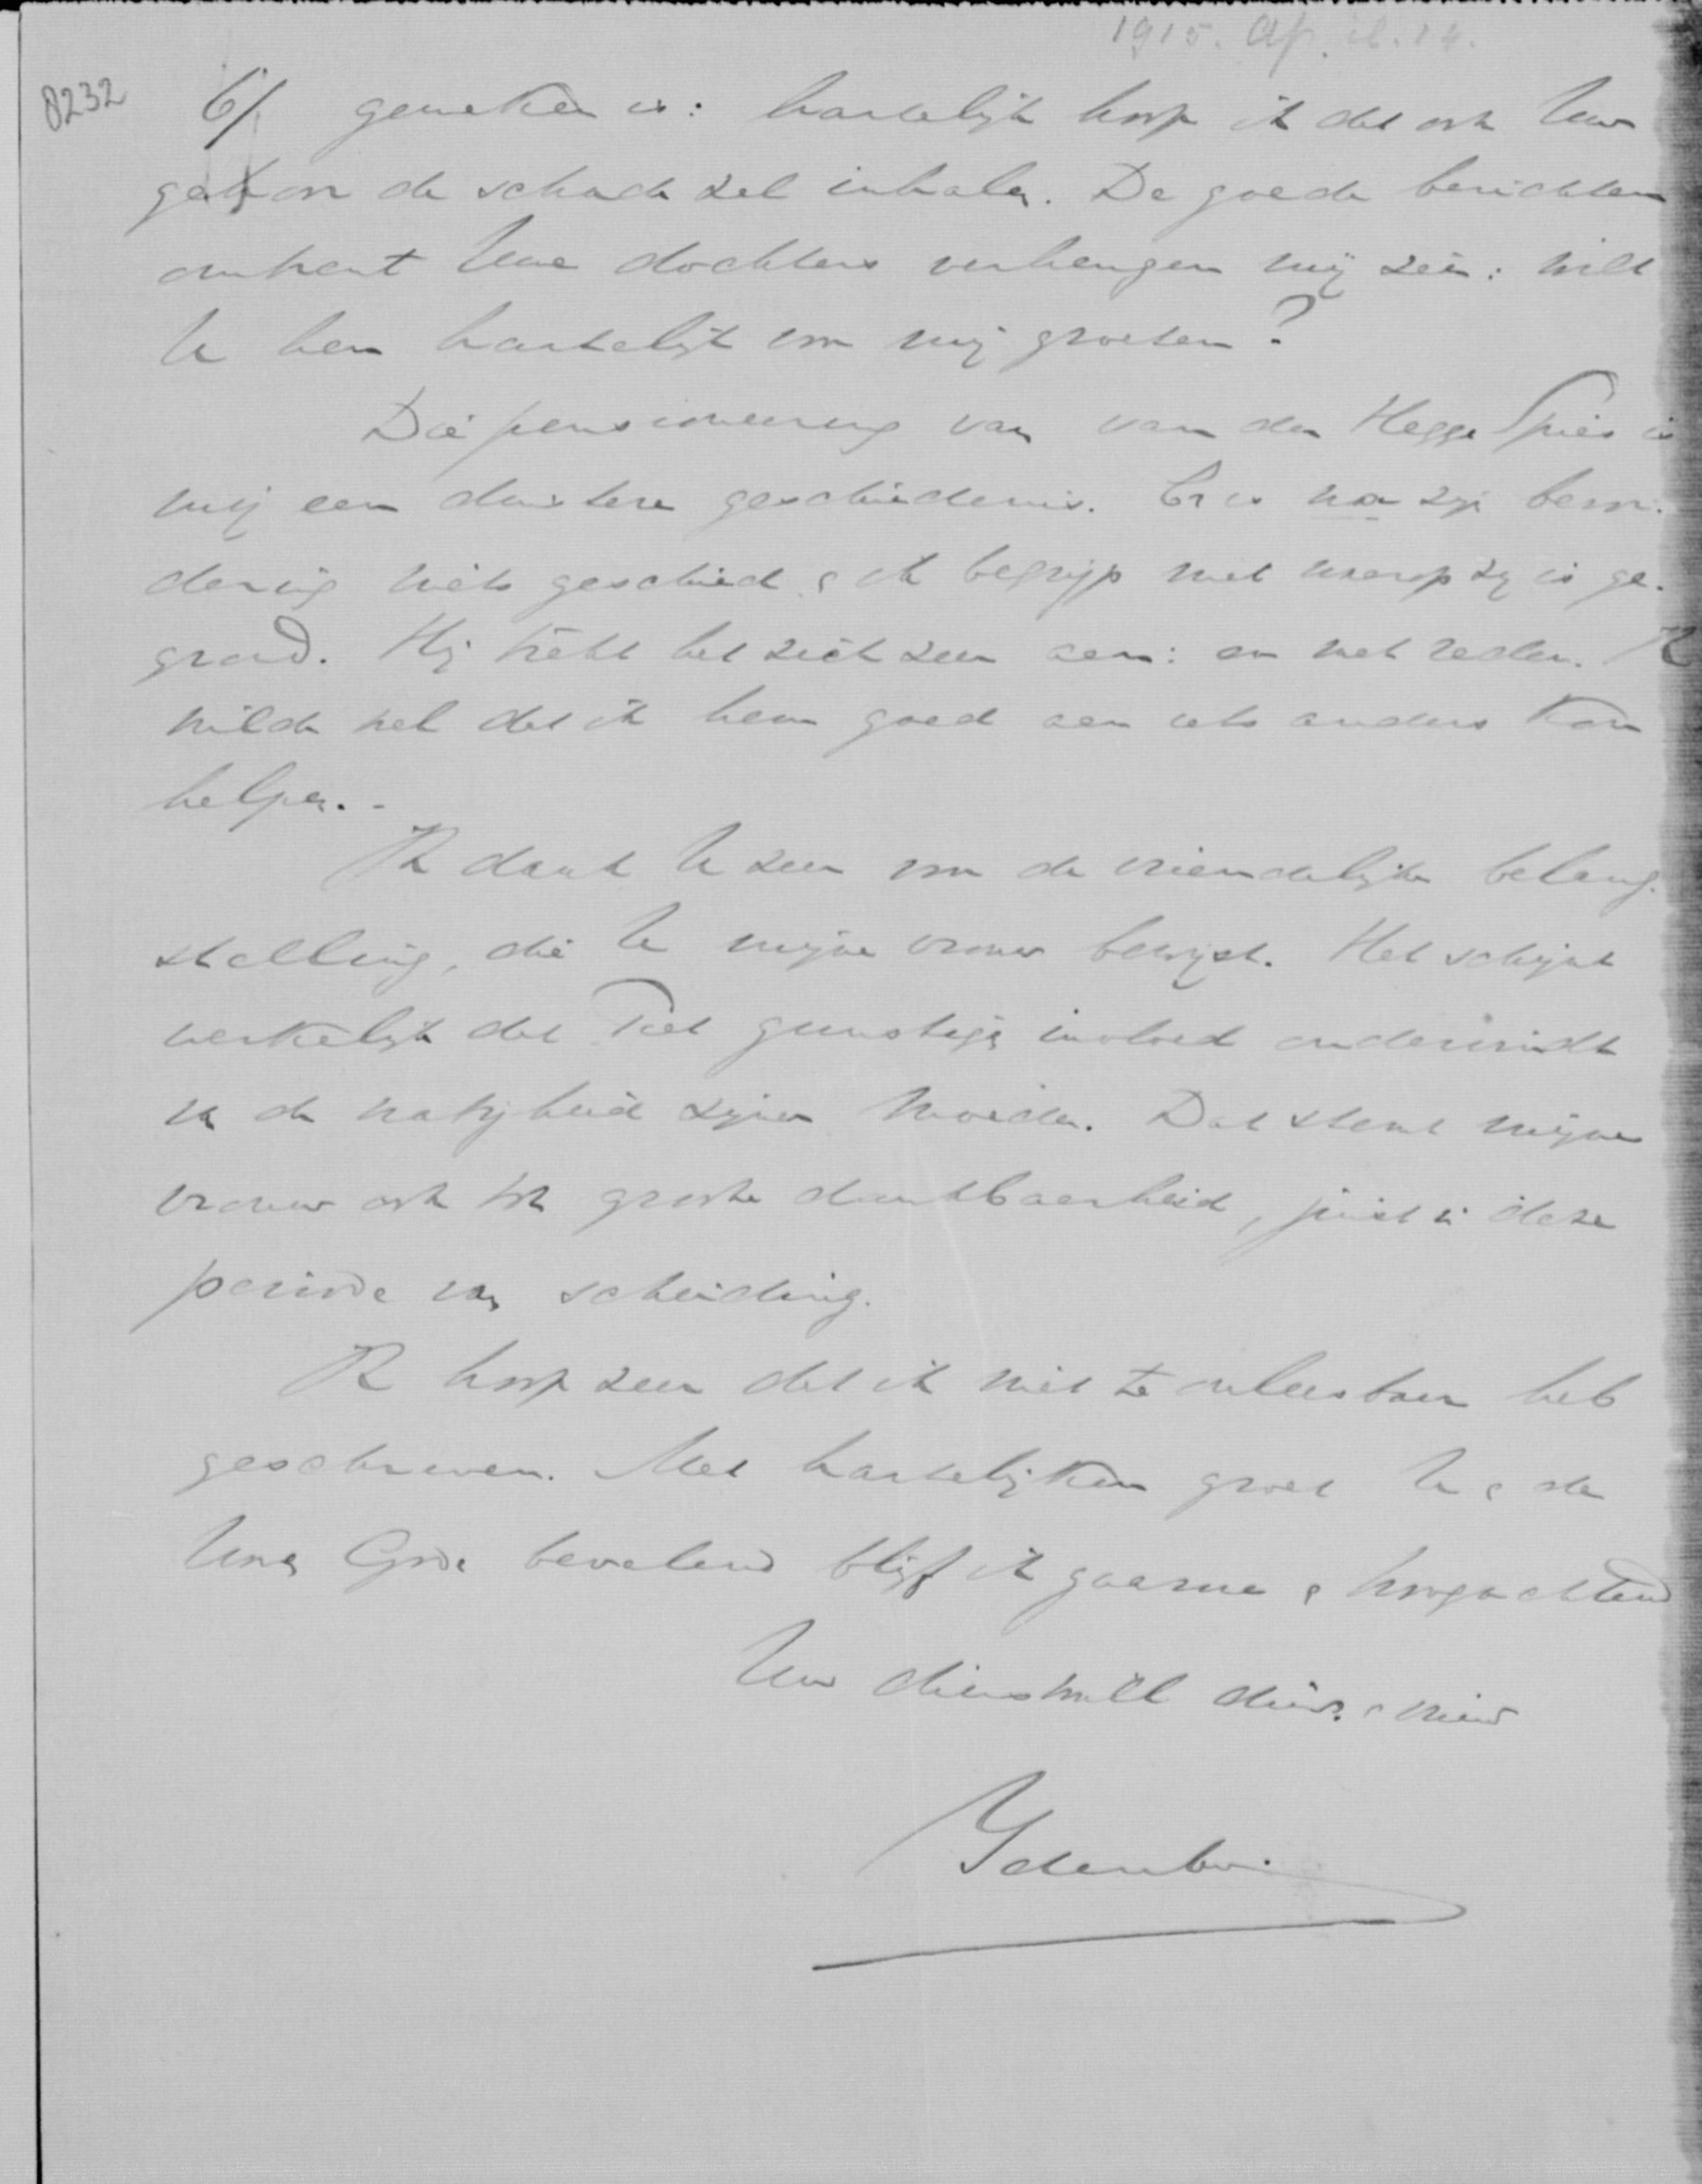 1915. April. 14.
8232
6/ geweken is: hartelijk hoop ik dat ook Uw
gehoor de schade zal inhalen. De goede berichten
omtrent Uwe dochters verheugen mij zeer: wilt
U hen hartelijk van mij groeten?
Die pensioneering van van der Hegge Spies is
mij een duistere geschiedenis. Er is na zijn bevor-
dering niets geschied & ik begrijp niet waarop zij is ge-
grond. Hij trekt het zich zeer aan: en met reden. Ik
wilde wel dat ik hem goed aan iets anders kon
helpen. -
Ik dank U zeer voor de vriendelijke belang-
stelling, die U mijne vrouw bewijst. Het schijnt
werkelijk dat Piet gunstige invloed ondervindt
van de nabijheid zijner moeder. Dat stemt mijne
vrouw ook tot groote dankbaarheid, juist in deze
periode van scheiding.
Ik hoop zeer dat ik niet te onleesbaar heb
geschreven. Met hartelijken groet U & de
Uwen Gode bevelend blijf ik gaarne & hoogachtend
Uw dienstwill dien. & vriend
Idenburg